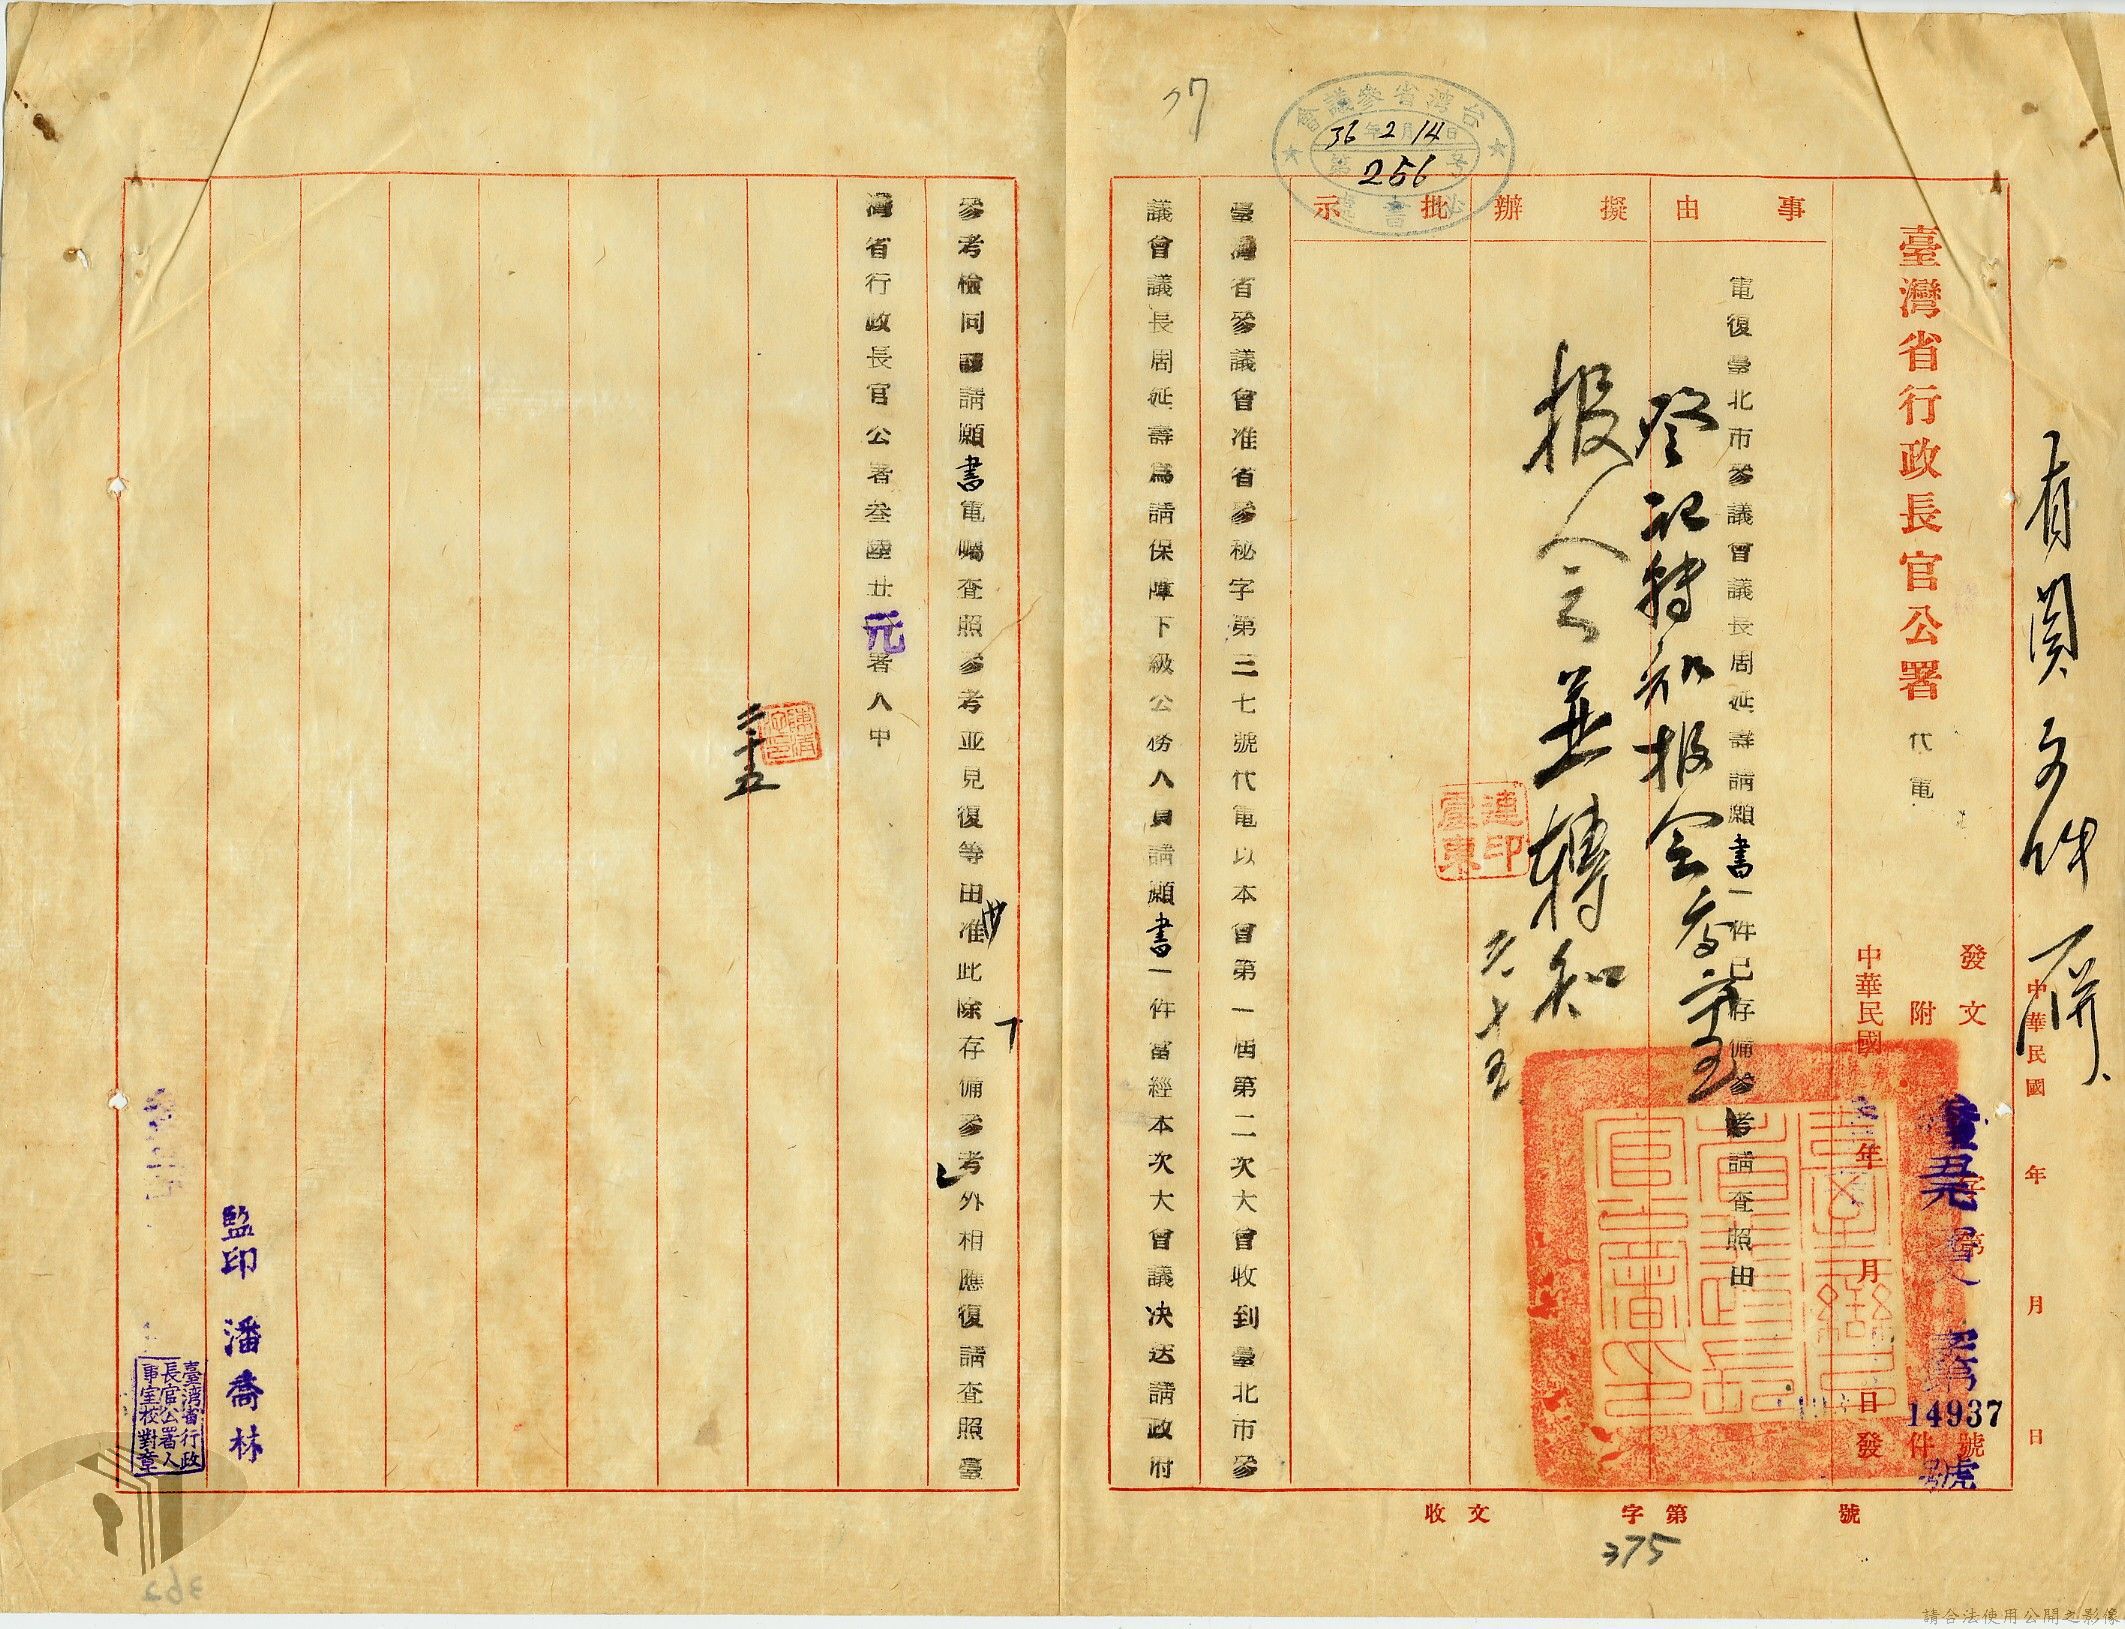 有関文件併
臺灣省行政長官公署 代電
中華民國 年 月 日
發文 字第 號
附 件
14937
號
中華民國 年 月 日發
事由
擬辦
批示
電復臺北市參議會議長周延壽請願書一件已存備參考請查照由
登記轉知報会
報人言並轉知
二、十五
連印震東
台灣省參議會
36年2月14日
第256号
秘書處
37
臺灣省參議會准省參秘字第三七號代電以本會第一屆第二次大會收到臺北市參
議會議長周延壽為請保障下級公務人員請願書一件當經本次大會議決送請政府
參考檢同請願書電囑查照參考並見復等由准此除存備參考外相應復請查照臺
灣省行政長官公署叁陸廿元署人甲
二、十五
監印 潘喬林
臺灣省行政
長官公署人
事室校對章
收文 字第 號
375
363
請合法使用公開之影像